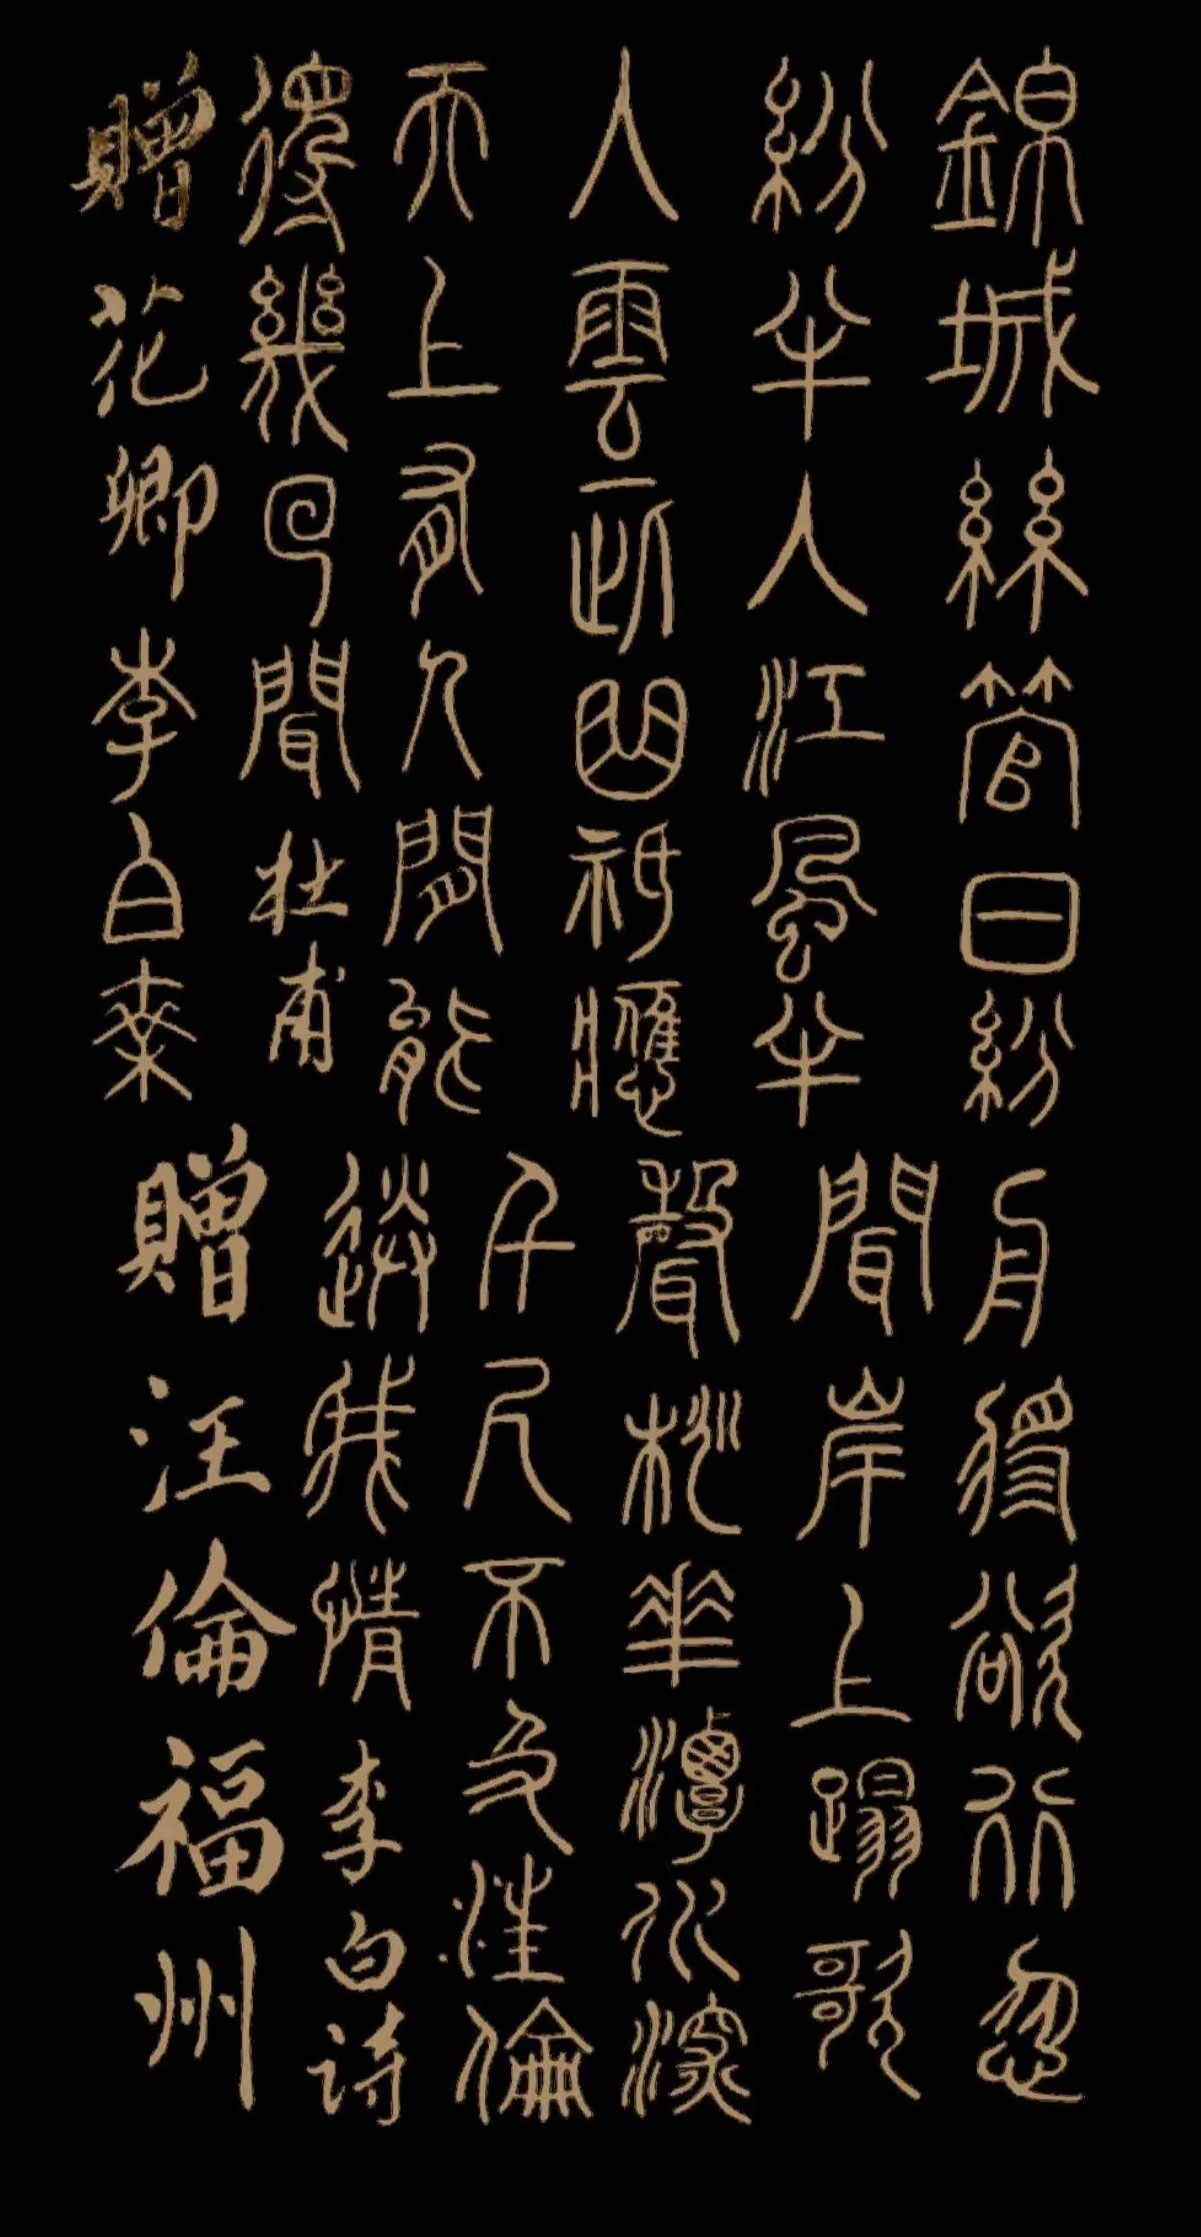 錦城絲管日紛
紛半入江風半
入雲此曲祇應
天上有人間能
得幾回聞杜甫
贈花卿李白乘
舟將欲行忽
聞岸上蹋歌
聲桃華潭水深
千尺不及汪倫
送我情李白诗
贈汪倫福州